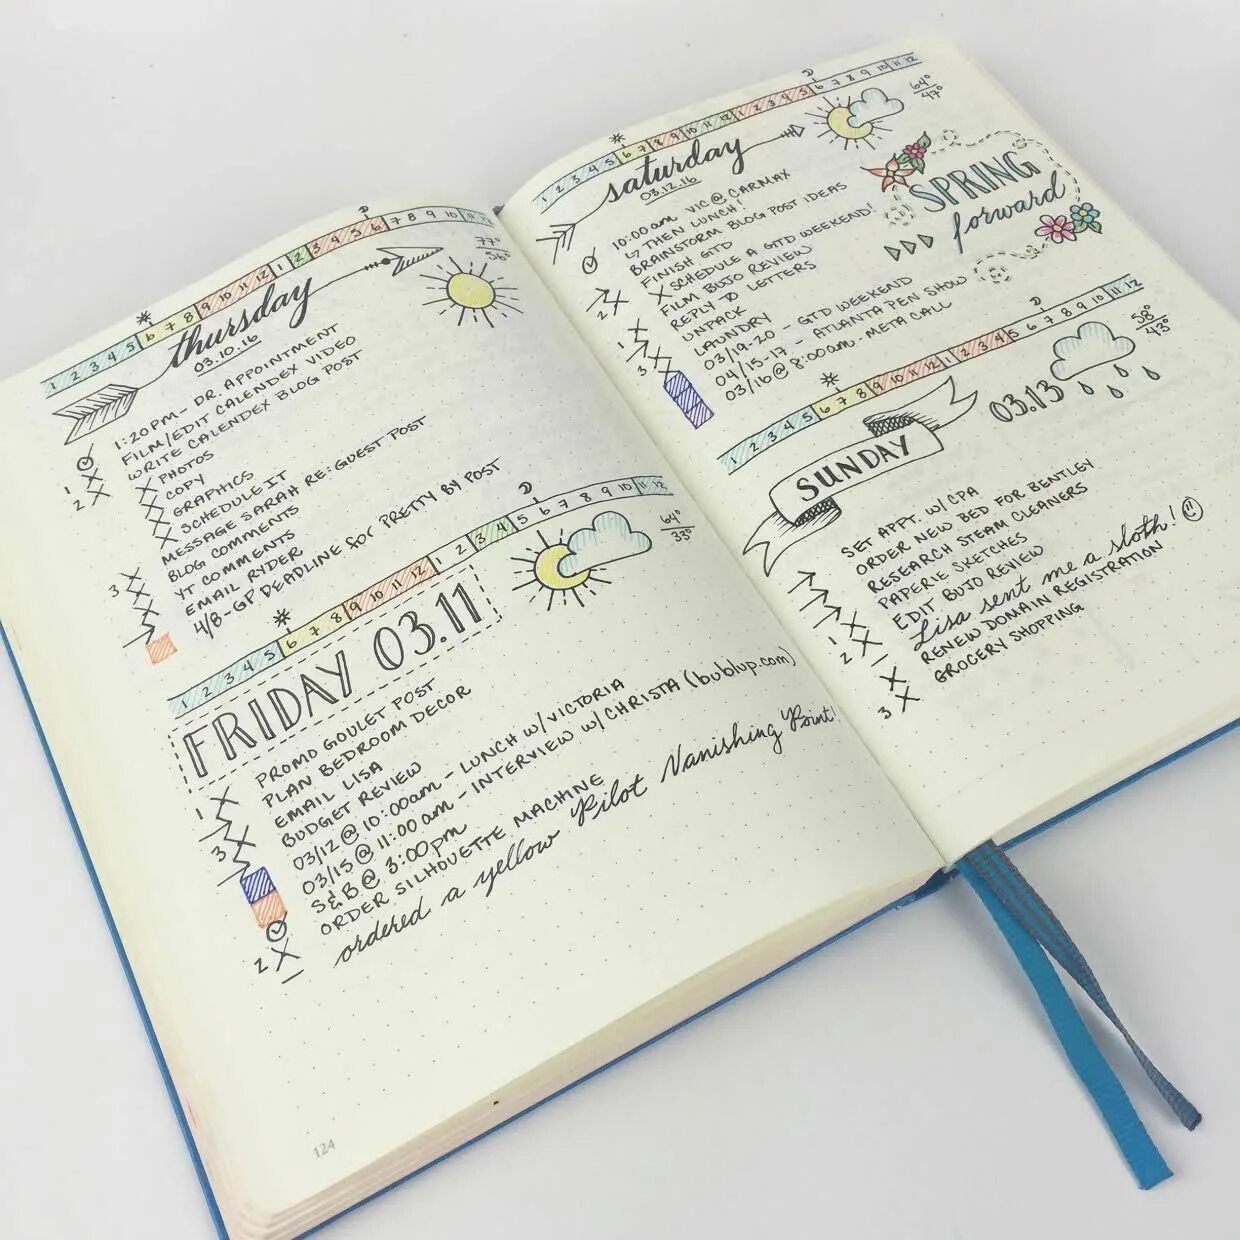 1 2 3 4 5 6 7 8 9 10 11 12 1 2 3 4 5 6 7 8 9 10 11 12
thursday
03.10.16
77°
56°
1:20PM - DR. APPOINTMENT
1 X FILM/EDIT CALENDEX VIDEO
2 X WRITE CALENDEX BLOG POST
X PHOTOS
X COPY
X GRAPHICS
X SCHEDULE IT
3 X MESSAGE SARAH RE: GUEST POST
X BLOG COMMENTS
X YT COMMENTS
> EMAIL RYDER
4/8 - GP DEADLINE for PRETTY BY POST
1 2 3 4 5 6 7 8 9 10 11 12 1 2 3 4 5 6 7 8 9 10 11 12
FRIDAY 03.11
64°
33°
1 X PROMO GOULET POST
> PLAN BEDROOM DECOR
3 X EMAIL LISA
> BUDGET REVIEW
03/12 @ 10:00am - LUNCH W/ VICTORIA
03/15 @ 11:00am - INTERVIEW W/ CHRISTA (bublup.com)
S&B @ 3:00pm
2 X ORDER SILHOUETTE MACHINE
— ordered a yellow Pilot Vanishing Point!
124
1 2 3 4 5 6 7 8 9 10 11 12 1 2 3 4 5 6 7 8 9 10 11 12
saturday
03.12.16
64°
47°
SPRING
forward
10:00am VIC @ CARMAX
↳ THEN LUNCH!
> BRAINSTORM BLOG POST IDEAS
2 X FINISH GTD
X SCHEDULE A GTD WEEKEND!
1 X FILM BUJO REVIEW
> REPLY TO LETTERS
3 X UNPACK
X LAUNDRY
03/19-20 - GTD WEEKEND
04/15-17 - ATLANTA PEN SHOW
03/16 @ 8:00am - META CALL
1 2 3 4 5 6 7 8 9 10 11 12 1 2 3 4 5 6 7 8 9 10 11 12
SUNDAY
03.13
58°
43°
> SET APPT. W/ CPA
> ORDER NEW BED FOR BENTLEY
> RESEARCH STEAM CLEANERS
1 X PAPERIE SKETCHES
2 X EDIT BUJO REVIEW
— Lisa sent me a sloth!
X RENEW DOMAIN REGISTRATION
3 X GROCERY SHOPPING